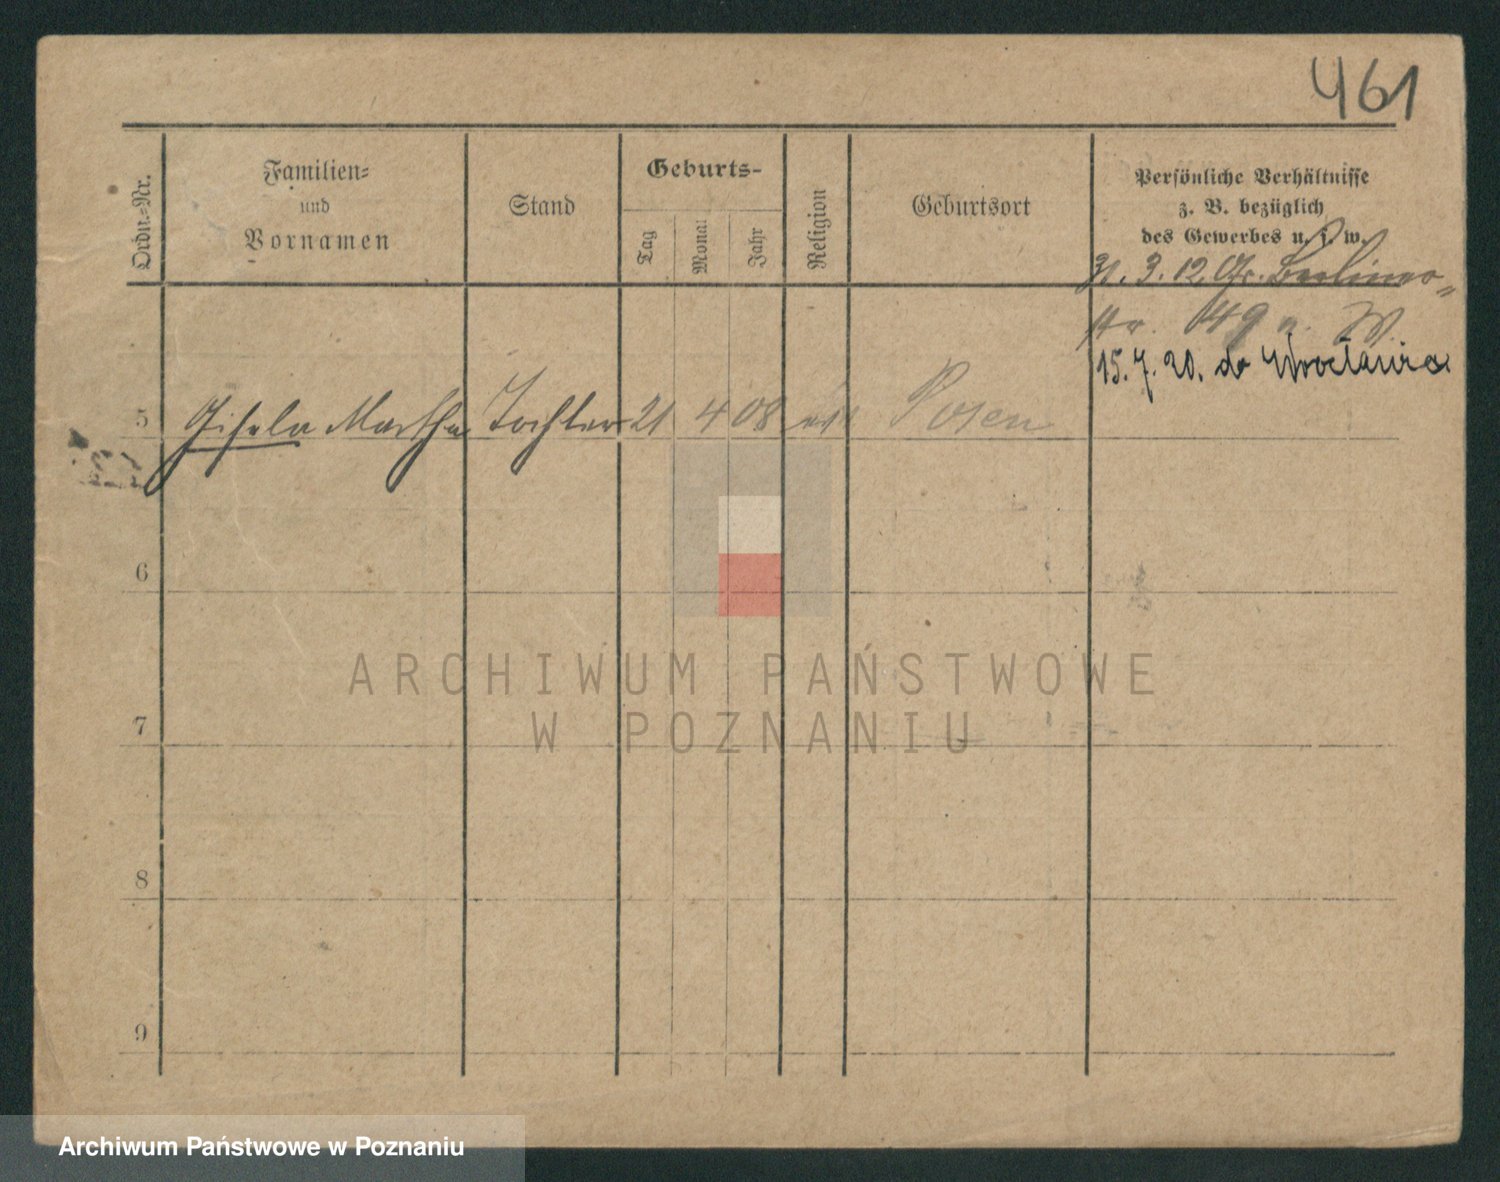 461
Ordn.=Nr.
Familien=
und
Vornamen
Stand
Geburts-
Tag
Monat
Jahr
Religion
Geburtsort
Persönliche Verhältnisse
z. B. bezüglich
des Gewerbes u. s. w.
31. 3. 12. Gr. Berliner=
str. 49 n. W.
15. 7. 20. do Wrocławia
5 Gisela Martha Tochter 21 4 08 Posen
6
7
8
9
ARCHIWUM PAŃSTWOWE
W POZNANIU
Archiwum Państwowe w Poznaniu